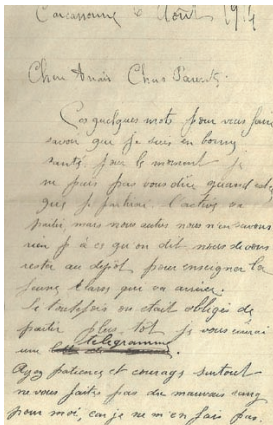 Carcassonne 6 Août 1914
Cher Anaïs Chers Parents
Ces quelques mots pour vous faire
savoir que je suis en bonne
santé pour le moment je
ne puis pas vous dire quand est
que je partirai. L'active va
partir mais nous autres nous n'en savons
rien à ce qu'on dit nous devons
rester au dépôt pour enseigner la
jeune classe que va arriver.
Si toutefois on était obligés de
partir plus tôt je vous
une télégramme.
Ayez patience et courage surtout
ne vous faites pas du mauvais sang
pour moi, car je ne m'en fais pas.